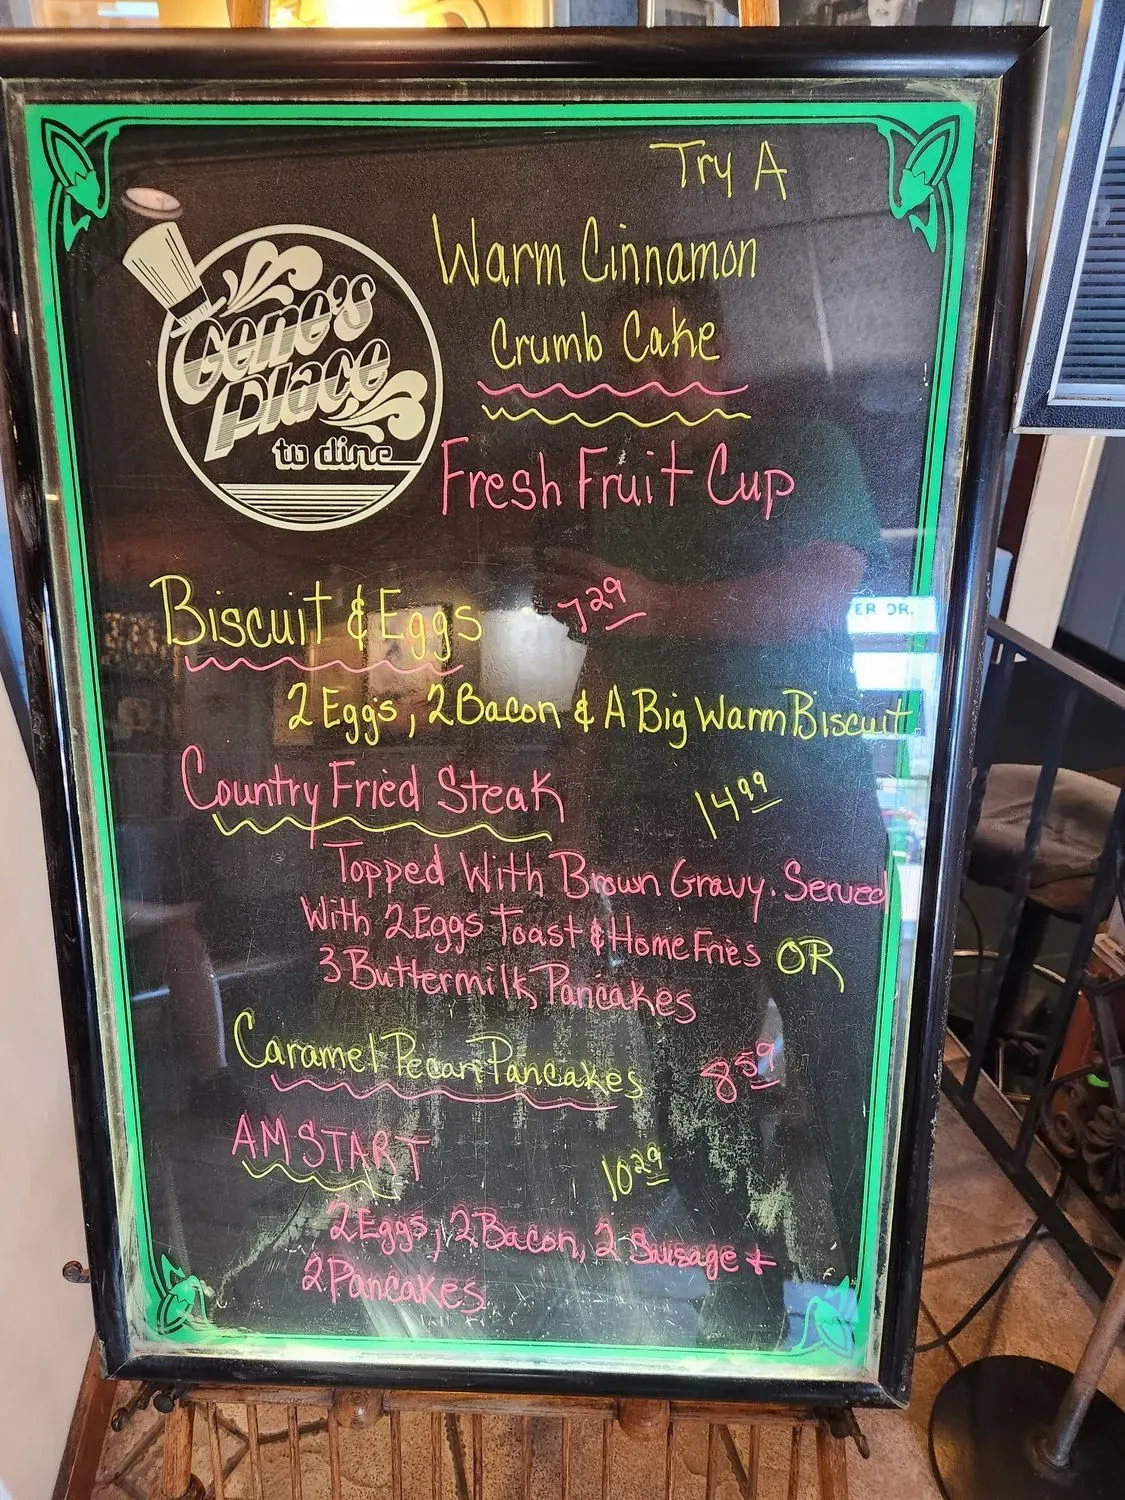 Try A
Warm Cinnamon
Crumb Cake
Gene's
Place
to dine
Fresh Fruit Cup
Biscuit & Eggs 7.29
2 Eggs, 2 Bacon & A Big Warm Biscuit
Country Fried Steak 14.99
Topped With Brown Gravy. Served
With 2 Eggs Toast & Home Fries OR
3 Buttermilk Pancakes
Caramel Pecan Pancakes 8.59
AM START 10.29
2 Eggs, 2 Bacon, 2 Sausage +
2 Pancakes